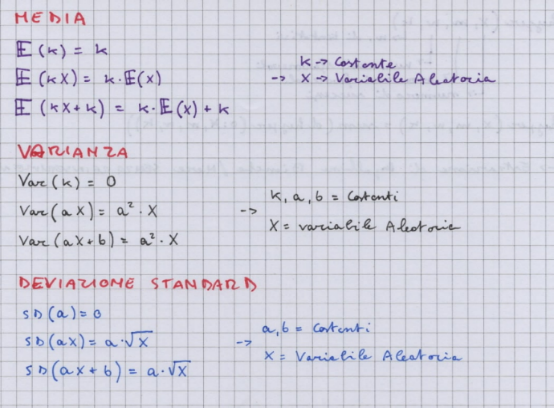 MEDIA
𝔼(k) = k
𝔼(kX) = k·𝔼(X)
𝔼(kX+k) = k·𝔼(X)+k
k → Costante
→ X → Variabile Aleatoria
VARIANZA
Var(k) = 0
Var(aX) = a²·X
Var(aX+b) = a²·X
→ k, a, b = Costanti
X = variabile Aleatoria
DEVIAZIONE STANDARD
SD(a) = 0
SD(aX) = a·√X
SD(aX+b) = a·√X
→ a, b = Costanti
X = Variabile Aleatoria